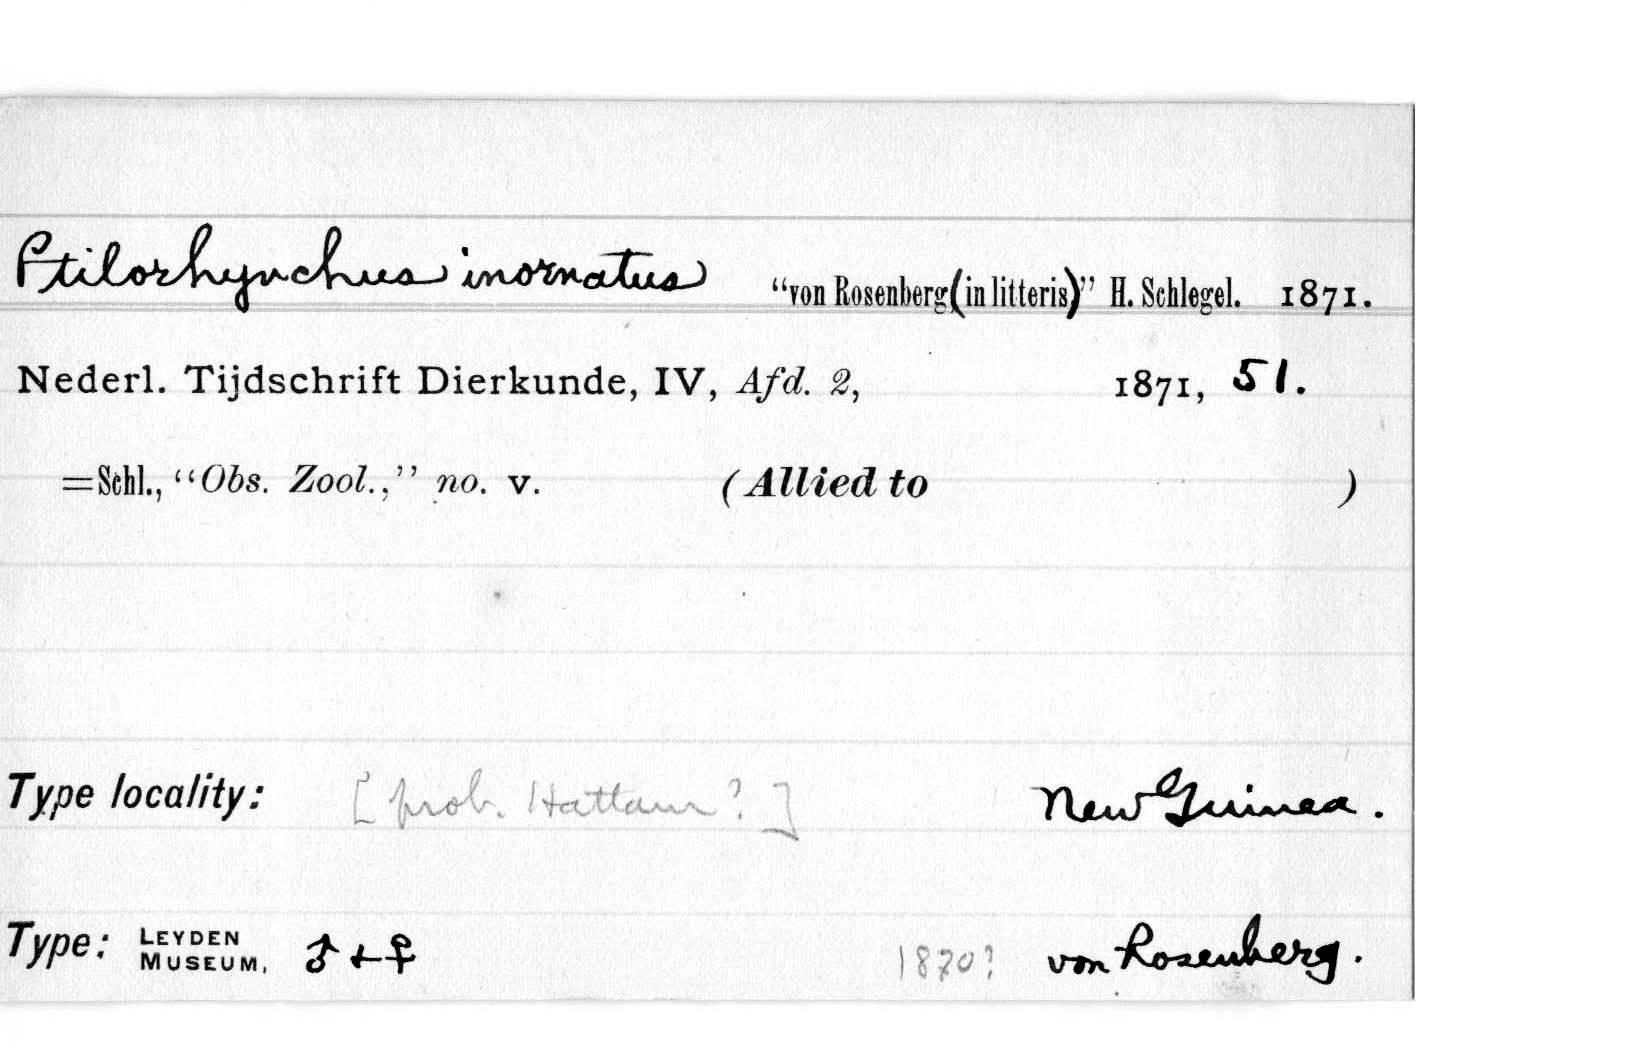 Ptilorhynchus inornatus "von Rosenberg (in litteris)" H. Schlegel. 1871.
Nederl. Tijdschrift Dierkunde, IV, Afd. 2, 1871, 51.
=Schl., "Obs. Zool.," no. v. (Allied to )
Type locality: [prob. Hattam?] New Guinea.
Type: LEYDEN MUSEUM, ♂ + ♀ 1870? von Rosenberg.